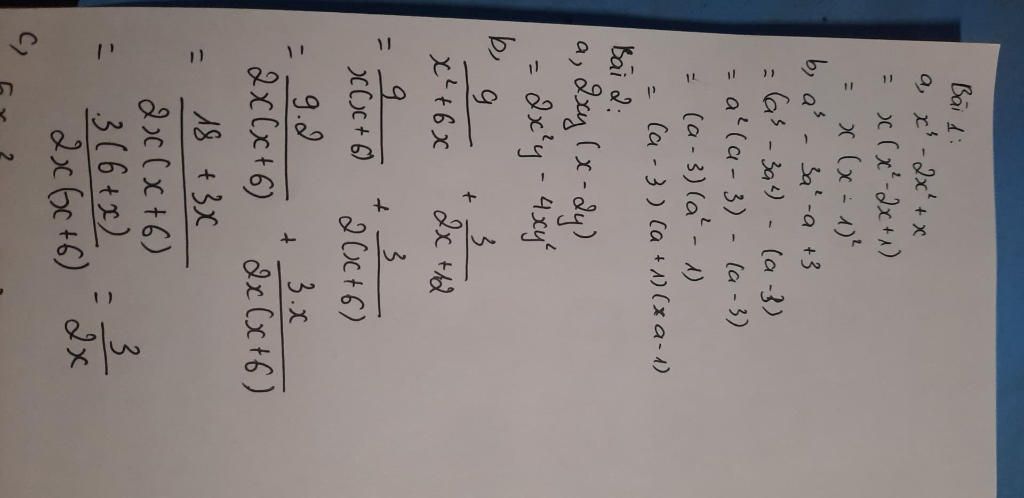 Bài 1:
a, x³ - 2x² + x
= x (x² - 2x + 1)
= x (x - 1)²
b, a³ - 3a² - a + 3
= (a³ - 3a²) - (a - 3)
= a² (a - 3) - (a - 3)
= (a - 3) (a² - 1)
= (a - 3) (a + 1) (x a - 1)
Bài 2:
a, 2xy (x - 2y)
= 2x²y - 4xy²
b, 9/(x² + 6x) + 3/(2x + 12)
= 9/(x(x + 6)) + 3/(2(x + 6))
= 9.2/(2x(x + 6)) + 3.x/(2x(x + 6))
= (18 + 3x)/(2x(x + 6))
= 3(6 + x)/(2x(x + 6)) = 3/(2x)
c,